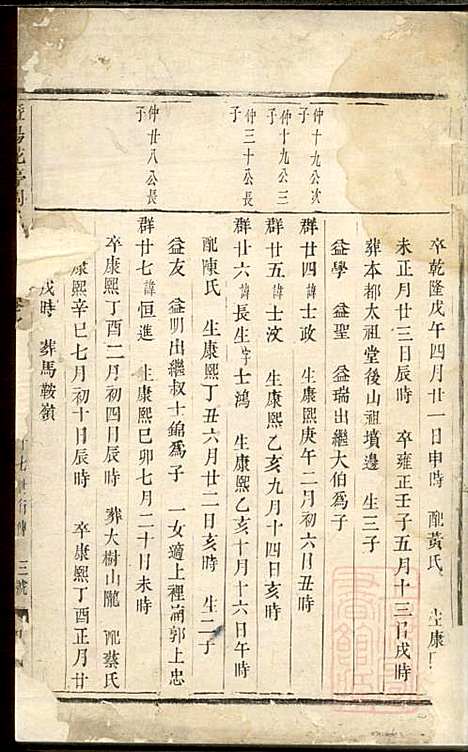 卒乾隆戊午四月廿一日申時 配黃氏 生康
未正月廿三日辰時 卒雍正壬子五月十三日戌時
葬本都太祖堂後山祖墳邊 生三子
益學 益聖 益瑞出繼大伯為子
仲十九公次子
群廿四諱士政 生康熙庚午二月初六日丑時
仲十九公三子
群廿五諱士汶 生康熙乙亥九月十四日亥時
仲三十公長子
群廿六諱長生字士鴻 生康熙乙亥十月十六日午時
配陳氏 生康熙丁丑六月廿二日亥時 生二子
益友 益明出繼叔士錦為子 一女適上裡湳郭上忠
仲廿八公長子
群廿七諱恒進 生康熙己卯七月二十日未時
卒康熙丁酉二月初四日辰時 葬大樹山隴 配蔡氏
康熙辛巳七月初十日辰時 卒康熙丁酉正月廿
戌時 葬馬鞍嶺
十七世行傳 三號